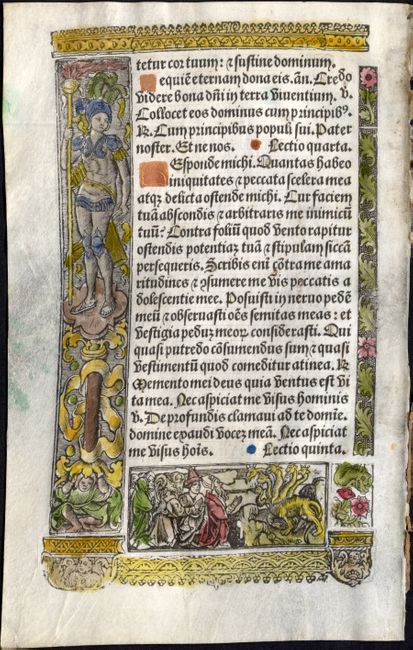 tetur cor tuum: ⁊ sustine dominum.
equiē eternam dona eis. añ. Credo
videre bona dñi in terra viventium. v.
Collocet eos dominus cum principibꝰ.
R. Cum principibus populi sui. Pater
noster. Et ne nos. Lectio quarta.
Responde michi. Quantas habeo
iniquitates ⁊ peccata scelera mea
atqꝫ delicta ostende michi. Cur faciem
tuā abscondis ⁊ arbitraris me inimicū
tuū? Contra foliū quod vento rapitur
ostendis potentiaꝫ tuā ⁊ stipulam siccā
persequeris. Scribis enī cōtra me ama
ritudines ⁊ ꝯsumere me vis peccatis a
dolescentie mee. Posuisti in neruo pedē
meū ⁊ obseruasti oēs semitas meas: et
vestigia peduꝫ meoꝝ considerasti. Qui
quasi putredo cōsumendus sum ⁊ quasi
vestimētū quod comeditur a tinea. R
Memento mei deus quia ventus est vi
ta mea. Nec aspiciat me visus hominis
v. De profundis clamaui ad te domīe.
domine exaudi voceꝫ meā. Nec aspiciat
me visus hoīs. Lectio quinta.